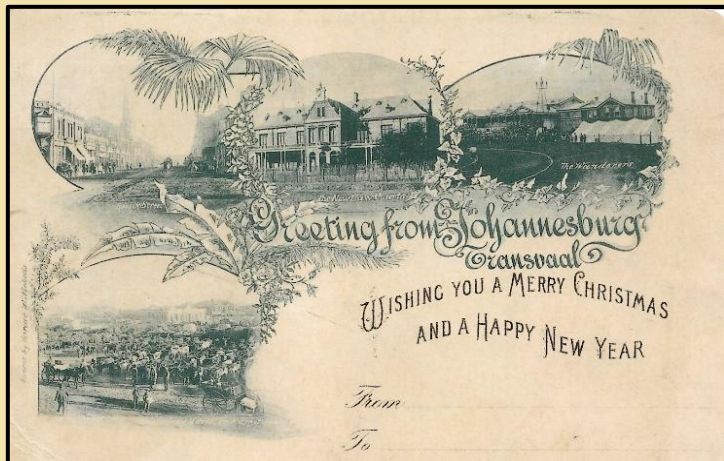 The Wanderers
Greeting from Johannesburg
Transvaal
WISHING YOU A MERRY CHRISTMAS
AND A HAPPY NEW YEAR
From
To